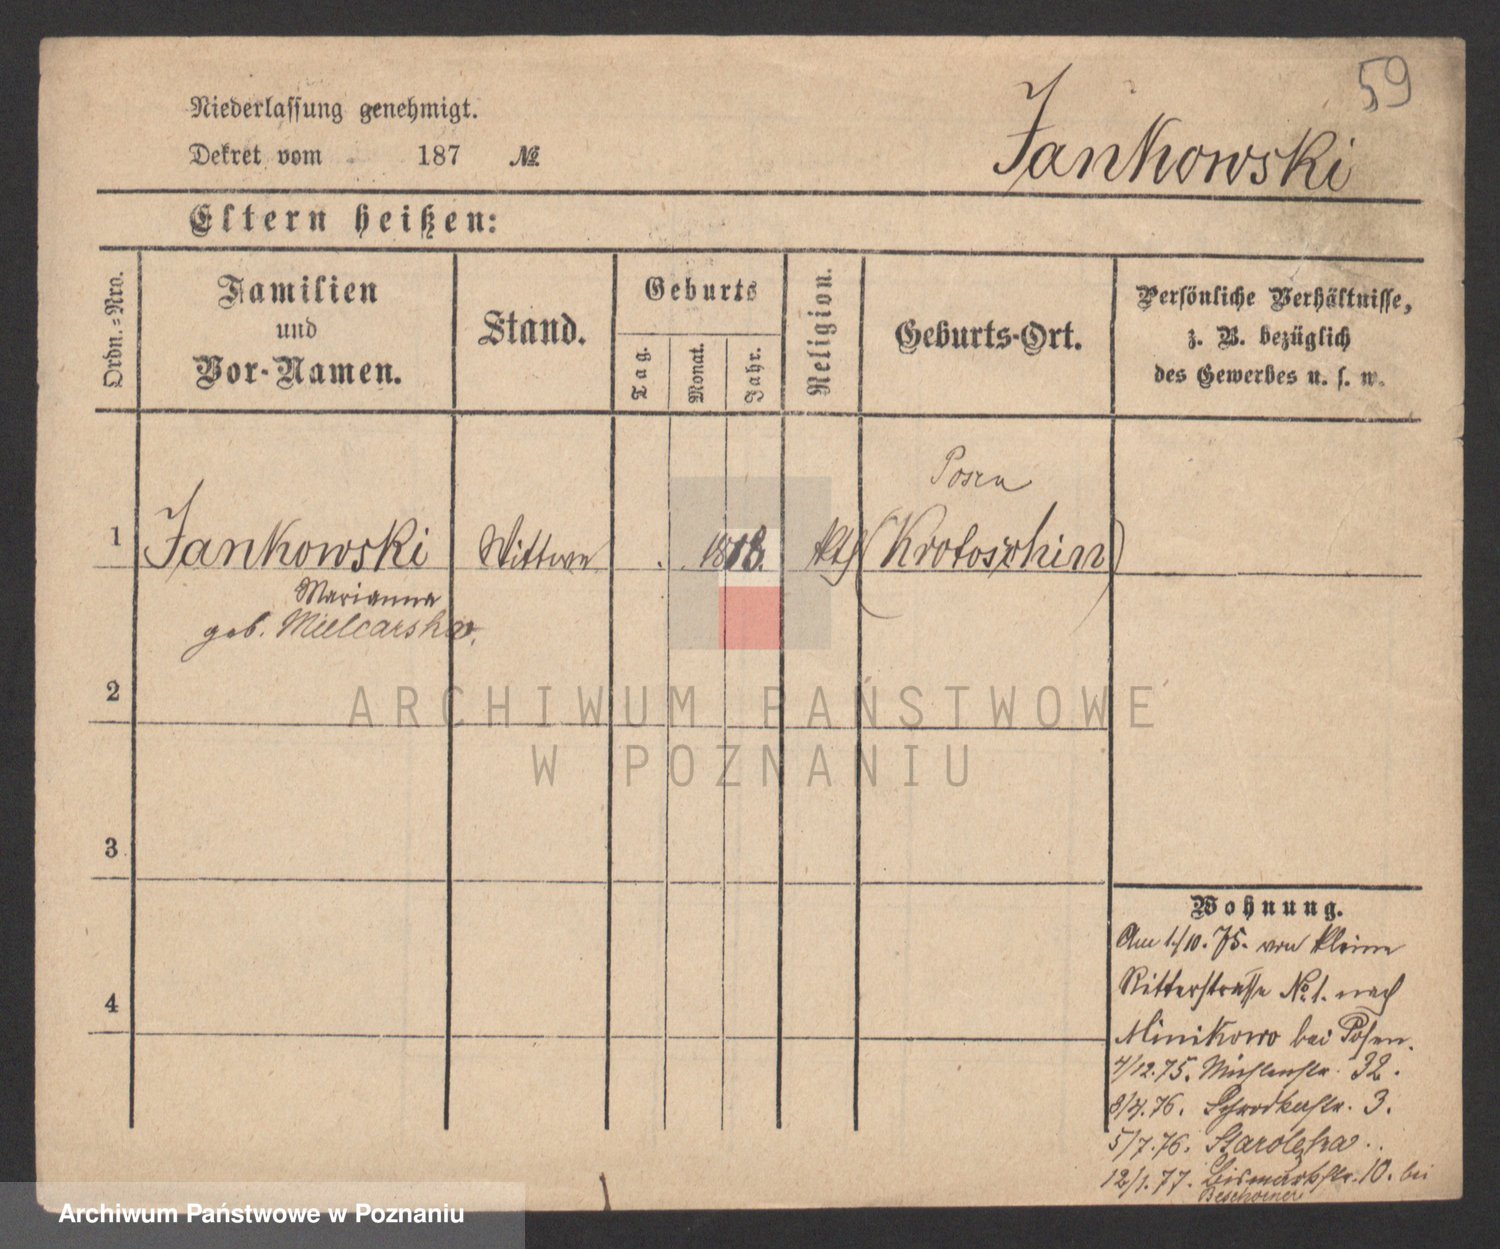 59
Niederlassung genehmigt.
Jankowski
Dekret vom 187 №
Eltern heißen:
Ordn.-Nro.
Familien
und
Vor-Namen.
Stand.
Geburts
Tag.
Monat.
Jahr.
Religion.
Geburts-Ort.
Persönliche Verhältnisse,
z. B. bezüglich
des Gewerbes u. s. w.
Posen
1 Jankowski Wittwe 1818. kth (Krotoschin)
Marianna
geb. Mielcarska.
2
3
4
Wohnung.
Am 1/10. 75. von kleine
Ritterstrasse No. 1. nach
Minikowo bei Posen.
4/12. 75. Mühlenstr. 32.
8/4. 76. Schrodkastr. 3.
5/7. 76. Starolenka.
12/1. 77. Bismarkstr. 10. bei
Beschorner
ARCHIWUM PAŃSTWOWE
W POZNANIU
Archiwum Państwowe w Poznaniu